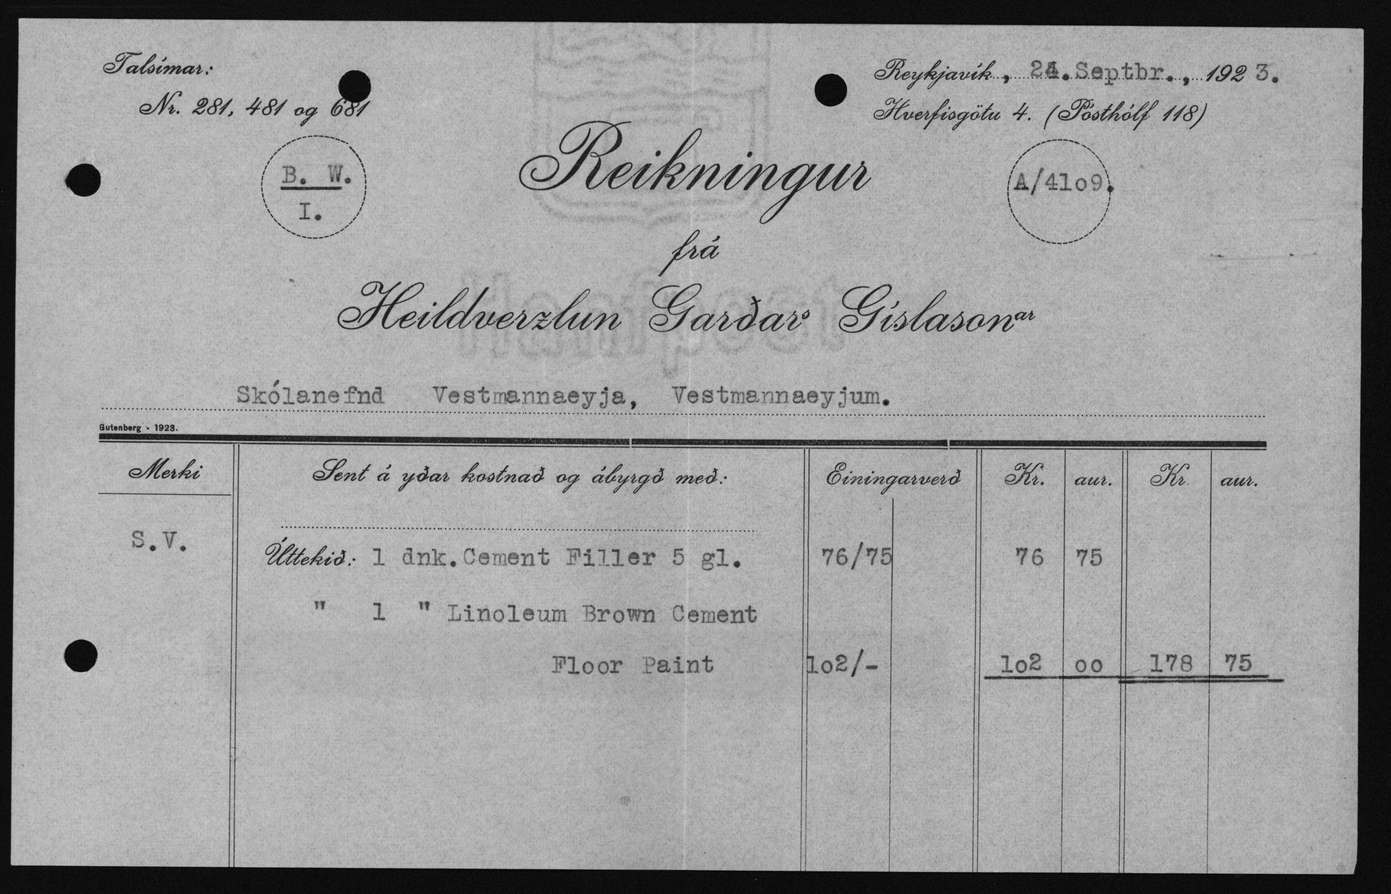 Talsímar:
Nr. 281, 481 og 681
Reykjavík, 24.Septbr., 1923.
Hverfisgötu 4. (Pósthólf 118)
B. W.
I.
A/4109.
Reikningur
frá
Heildverzlun Garðars Gíslasonar
Hanfpost
Skólanefnd Vestmannaeyja, Vestmannaeyjum.
Gutenberg - 1923.
Merki Sent á yðar kostnað og ábyrgð með: Einingarverð Kr. aur. Kr. aur.
S.V.
Úttekið: 1 dnk. Cement Filler 5 gl. 76/75 76 75
" 1 " Linoleum Brown Cement
Floor Paint 1o2/- 1o2 oo 178 75